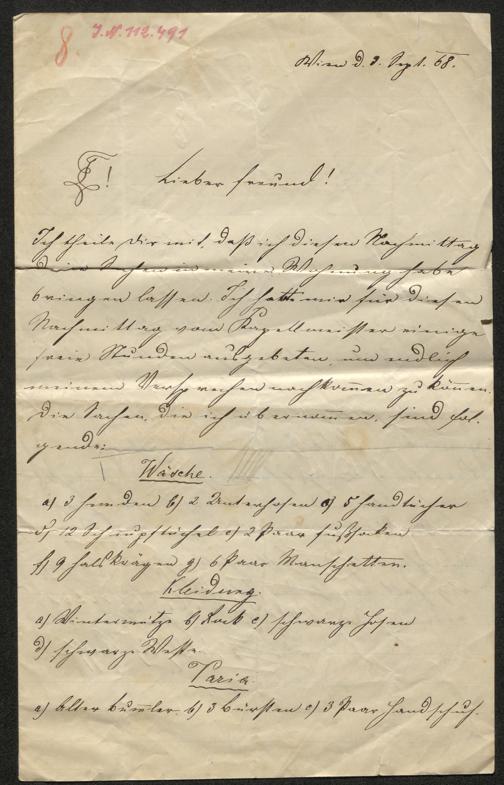 8.
I.N. 112.491
Wien d. 3. Sept. 68.
Lieber Freund!
Ich theile Dir mit, daß ich diesen Nachmittag
Deine Sachen in meine Wohnung habe
bringen lassen. Ich hatte mir für diesen
Nachmittag vom Kapellmeister einige
freie Stunden ausgebeten, um endlich
meinem Versprechen nachkommen zu können.
Die Sachen, die ich übernommen, sind fol-
gende:
Wäsche.
a) 3 Hemden b) 2 Unterhosen c) 5 Handtücher
d) 12 Schnupftüchel e) 2 Paar Fußsocken
f) 9 Halskrägen g) 6 Paar Manschetten.
Kleidung.
a) Wintermütze b) Rock c) schwarze Hosen
d) schwarze Weste.
Varia.
a) Alter b) 3 Bürsten c) 3 Paar Handschuh.